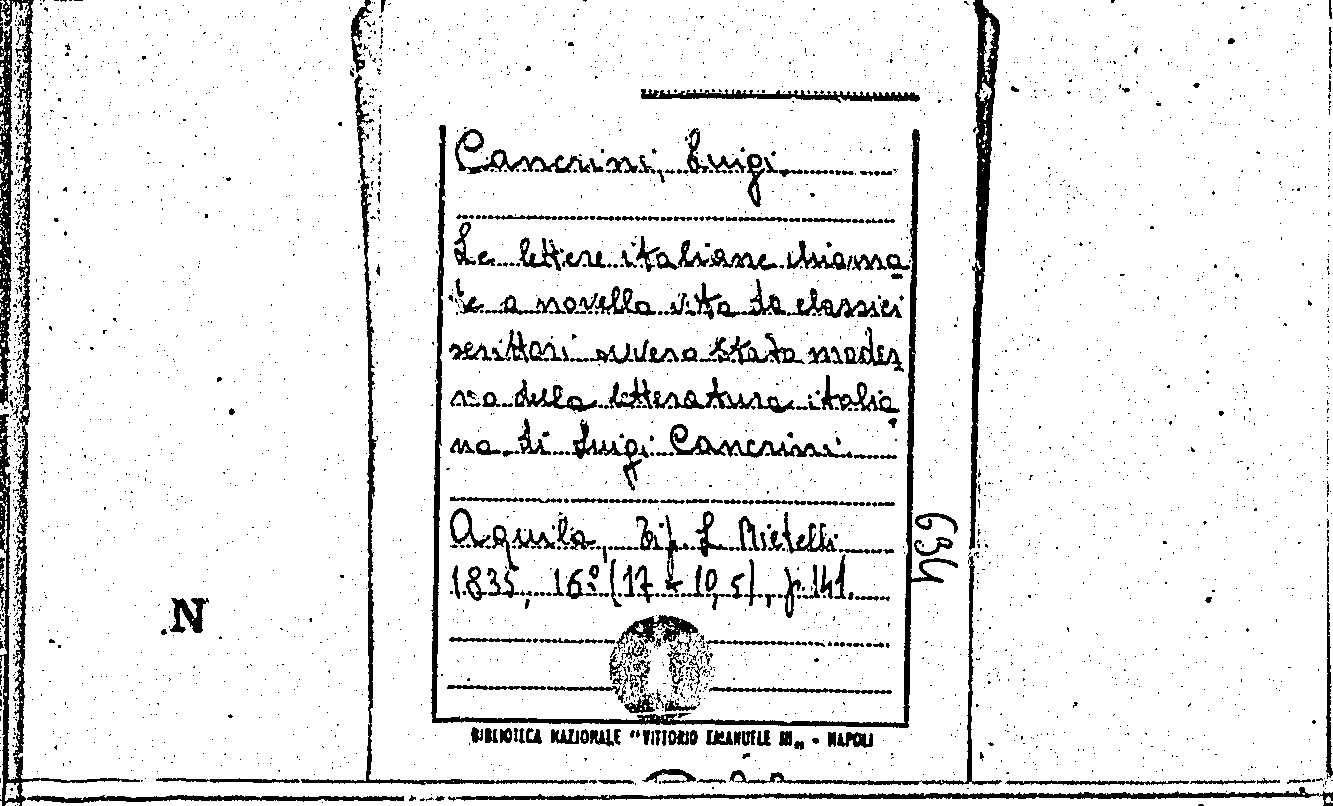 Cancrini, Luigi.
Le lettere italiane chiama
te a novella vita da classici
scrittori ovvero Stato moder
no della letteratura italia
na. di Luigi Cancrini.
Aquila, Tip. L. Rietelli
1835, 16º (17 x 10,5), p. 141.
634
N
BIBLIOTECA NAZIONALE "VITTORIO EMANUELE III„ - NAPOLI